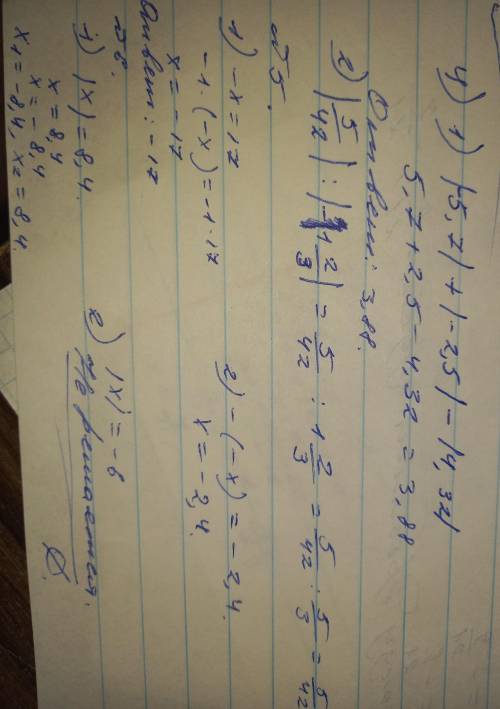 4) 1) |5,7| + |-2,5| - |4,32|
5,7 + 2,5 - 4,32 = 3,88
Ответ: 3,88.
2) |5/42| : |-1 2/3| = 5/42 : 1 2/3 = 5/42 : 5/3 = 5/42
№5.
1) -x = 17
-1·(-x) = -1·17
x = -17
Ответ: -17
2) -(-x) = -2,4.
x = -2,4.
№6.
1) |x| = 8,4.
x = 8,4
x = -8,4
x₁ = -8,4, x₂ = 8,4.
2) |x| = -6
Не решается.
∅.